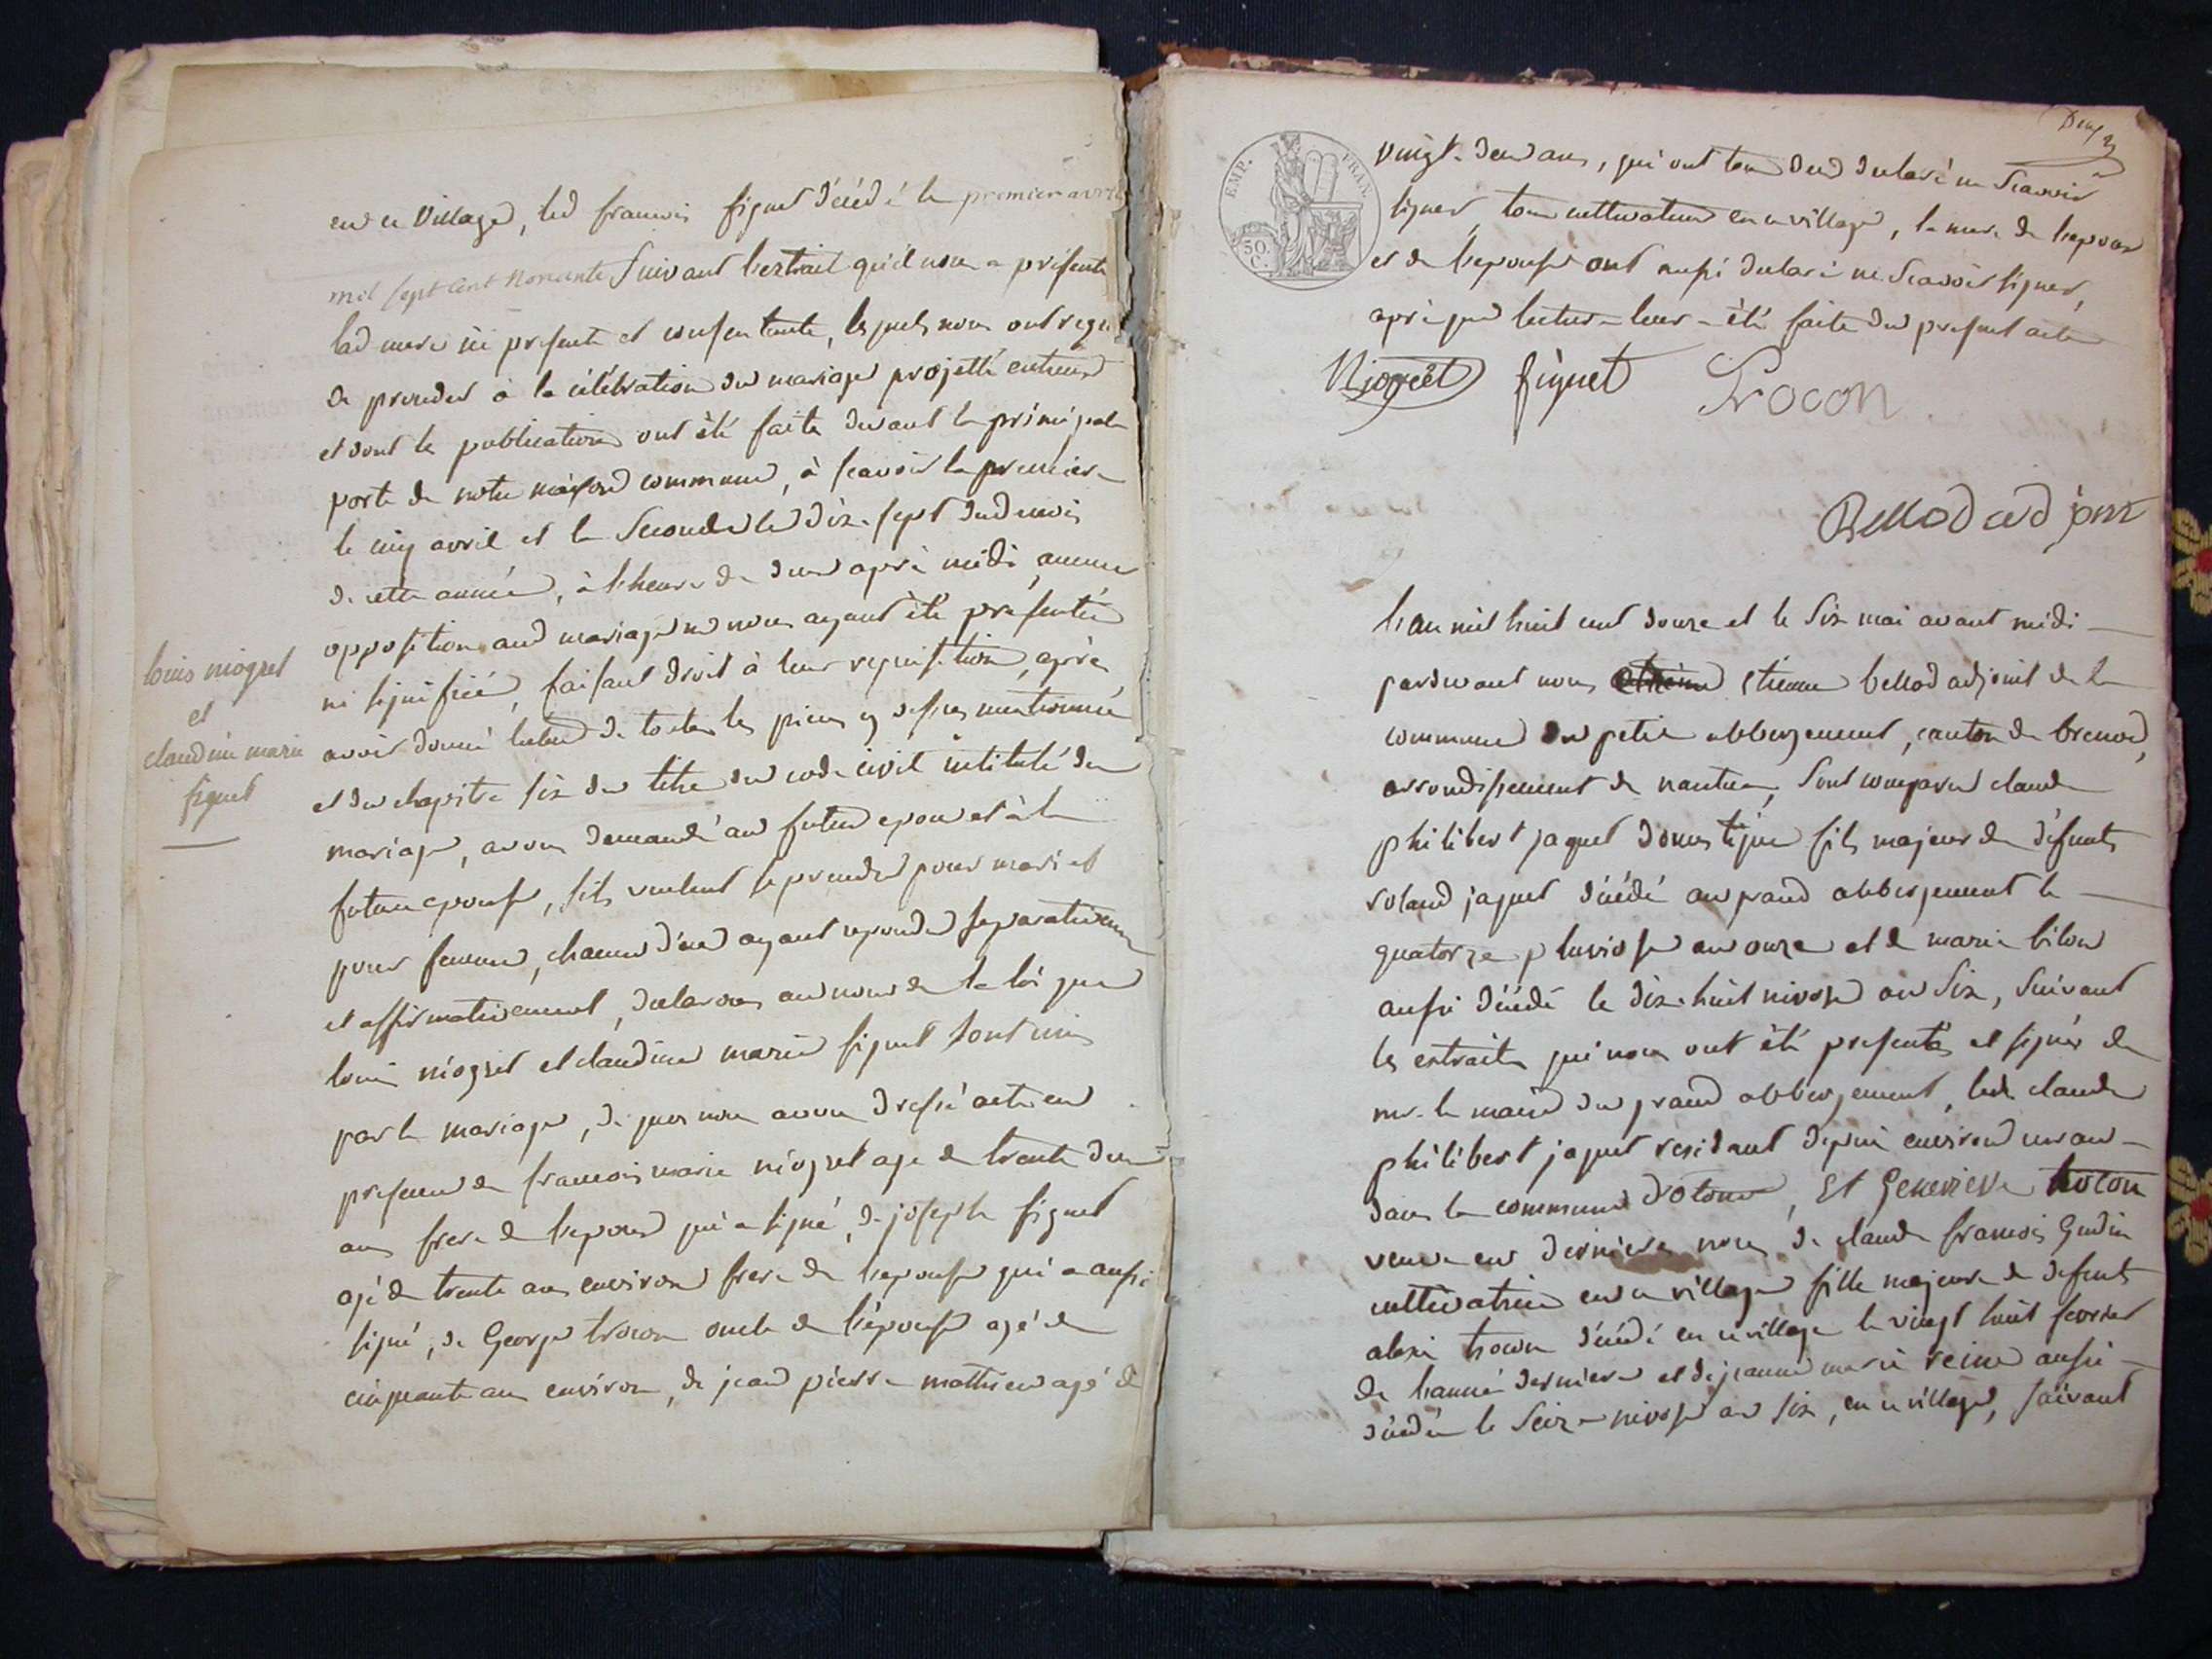 en ce village, led francois figuet décédé le premier avril
mil sept cent nonante suivant l'extrait qu'il nous a présenté
lad mere ici presente et consentante, lesquels nous ont requis
de proceder à la célébration du mariage projetté entreux
et dont les publications ont été faites devant la principale
porte de notre maison commune, à scavoir la premiere
le cinq avril et la seconde le dix-sept dud mois
de cette année, à l'heure de deux après midi, aucune
opposition aud mariage ne nous ayant été presentée
ni signifiée, faisant droit à leur requisition, après
avoir donné lecture de toutes les pieces cy dessus mentionnée
et du chapitre six du titre du code civil intitulé du
mariage, avons demandé au futur epoux et à la
future epouse, s'ils veulent se prendre pour mari et
pour femme, chacun d'eux ayant repondu separativement
et affirmativement, declarons au nom de la loi que
louis niogret et claudine marie figuet sont unis
par le mariage, de quoi nous avons dressé acte en
presence de francois marie niogret age de trente deux
ans frere de l'epoux qui a signé, de joseph figuet
agé de trente ans environ frere de l'epouse qui a aussi
signé, de George trocon oncle de l'épouse agé de
cinquante ans environ, de jean pierre mathieu agé de
louis niogret
et
claudine marie
figuet
Deux
EMP. FRAN.
50 C.
vingt-deux ans, qui ont tous deux declaré ne scavoir
signer, tous cultivateurs en ce village, la mere de l'epoux
et de l'epouse ont aussi declaré ne scavoir signer,
après que lecture leur a été faite du present acte
Niogret figuet Trocon
Bellod adjoint
l'an mil huit cent douze et le six mai avant midi
pardevant nous etienne bellod adjoint de la
commune du petit abbergement, canton de brenod,
arrondissement de nantua, sont comparu claude
philibert jaquet domestique fils majeur de défunts
roland jaquet décédé au grand abbergement le
quatorze pluviose an onze et de marie bilon
aussi décédé le dix-huit nivose an six, suivant
les extraits qui nous ont été presentés et signés de
mr. le maire du grand abbergement, led. claude
philibert jaquet residant depuis environ un an
dans la commune d'otonne, Et Genevieve trocon
veuve en dernieres noces de claude francois Gudin
cultivatrice en ce village fille majeure de defunts
alexi trocon décédé en ce village le vingt huit fevrier
de l'année derniere et de jeanne marie reine aussi
décédée le seize nivose an six, en ce village, suivant